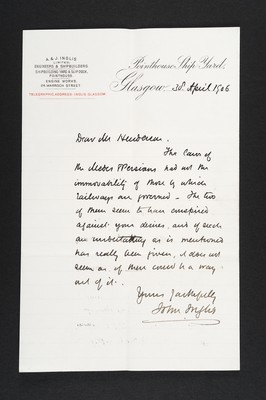 A & J INGLIS
LIMITED.
ENGINEERS & SHIPBUILDERS
SHIPBUILDING YARD & SLIP DOCK,
POINTHOUSE.
ENGINE WORKS,
64 WARROCH STREET.
TELEGRAPHIC ADDRESS: INGLIS GLASGOW
Pointhouse Ship Yard,
Glasgow, 30 April 1906
Dear Mr Henderson.
The Laws of
the Medes & Persians had not the
immovability of those by which
railways are governed – The two
of them seem to have conspired
against your desires, and if such
an undertaking as is mentioned
has really been given, it does not
seem as if there could be a way
out of it.
Yours faithfully
John Inglis